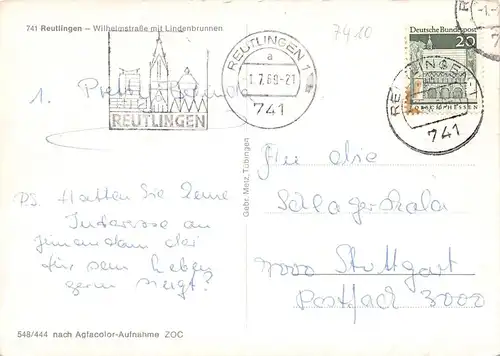 741 Reutlingen – Wilhelmstraße mit Lindenbrunnen
7410
REUTLINGEN
REUTLINGEN 1
a
-1.7.69-21
741
Deutsche Bundespost
20
REUTLINGEN 1
741
1. Pretty Belinda
PS. Hatten Sie keine
Interesse an
jemandem der
für sein Leben
gern singt?
Gebr. Metz, Tübingen
Für die
Schlagerskala
7000 Stuttgart
Postfach 3000
548/444 nach Agfacolor-Aufnahme ZOC